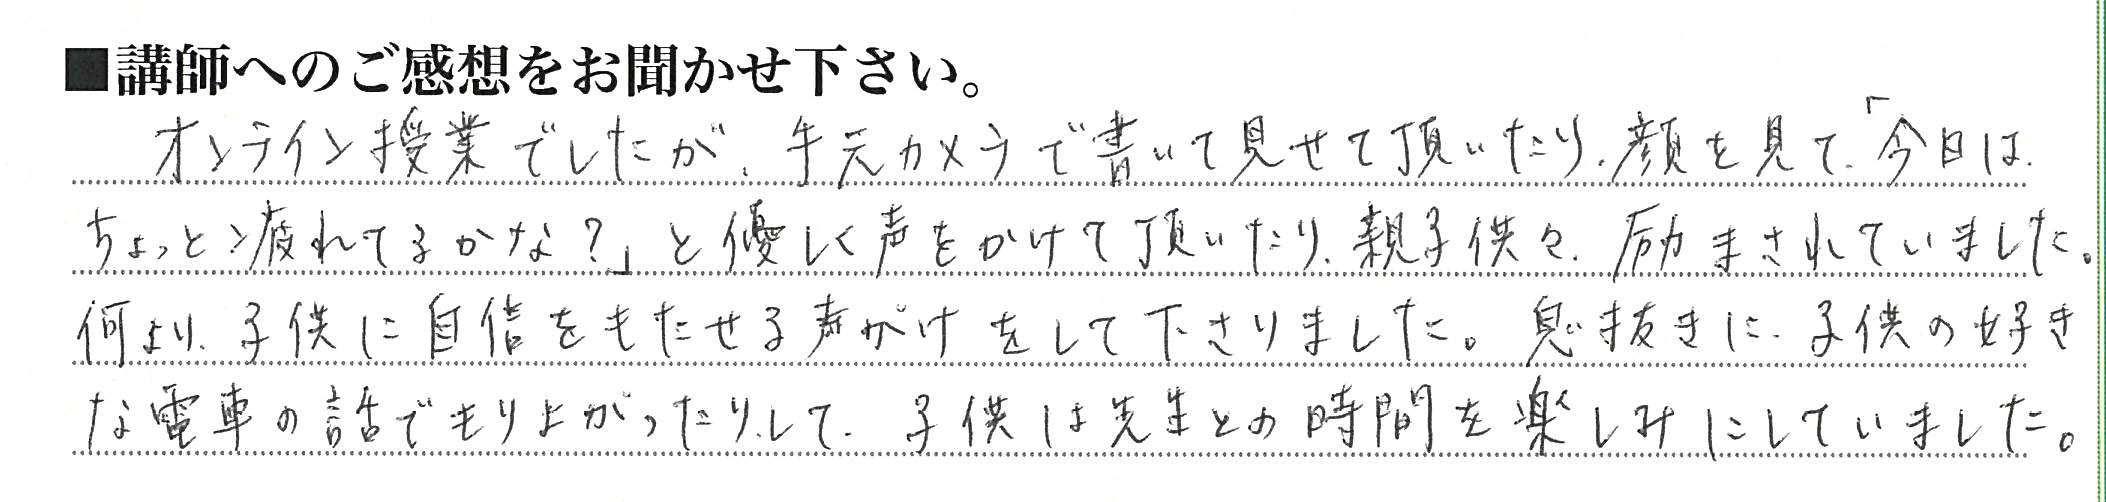 ■講師へのご感想をお聞かせ下さい。
オンライン授業でしたが、手元カメラで書いて見せて頂いたり、顔を見て、「今日は、
ちょっと疲れてるかな？」と優しく声をかけて頂いたり、親子供々、励まされていました。
何より、子供に自信をもたせる声がけをして下さりました。息抜きに、子供の好き
な電車の話でもりよがったりして、子供は先生との時間を楽しみにしていました。